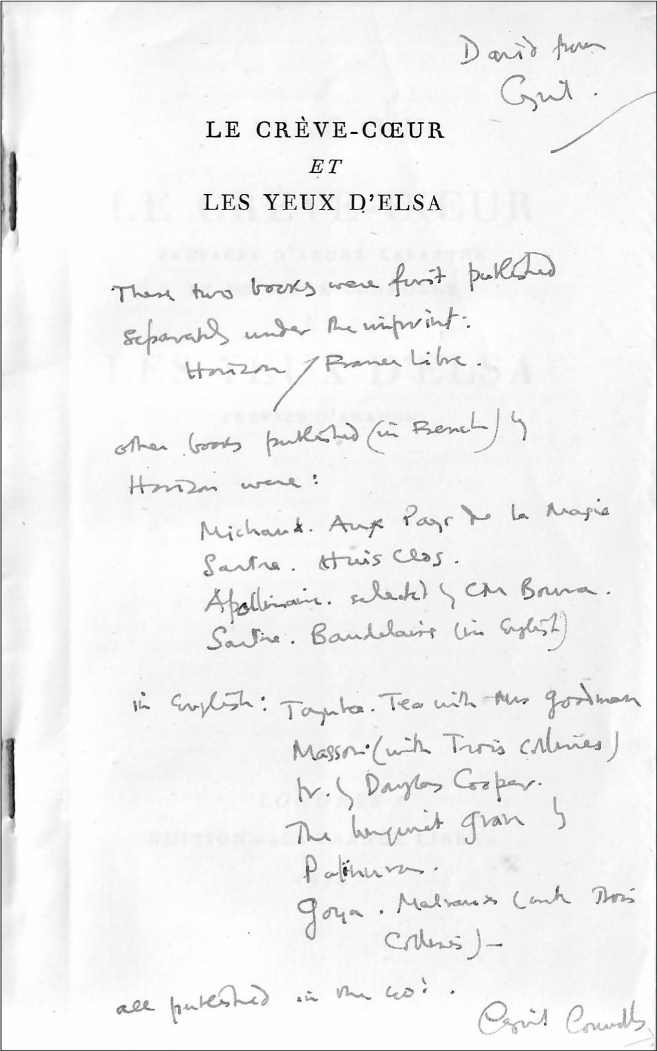 David from
Cyril.
LE CRÈVE-CŒUR
ET
LES YEUX D'ELSA
These two books were first published
separately under the imprint:
Horizon / France Libre.
other books published (in French) by
Horizon were:
Michaux. Aux Pays de la Magie
Sartre. Huis Clos.
Apollinaire. selected by CM Bowra.
Sartre. Baudelaire (in English)
in English: Toynbee. Tea with Mrs Goodman
Masson (with Trois collines)
tr. by Douglas Cooper.
The Unquiet Grave by
Palinurus.
Goya. Malraux (with Trois
Collines) —
all published in the 40's.
Cyril Connolly